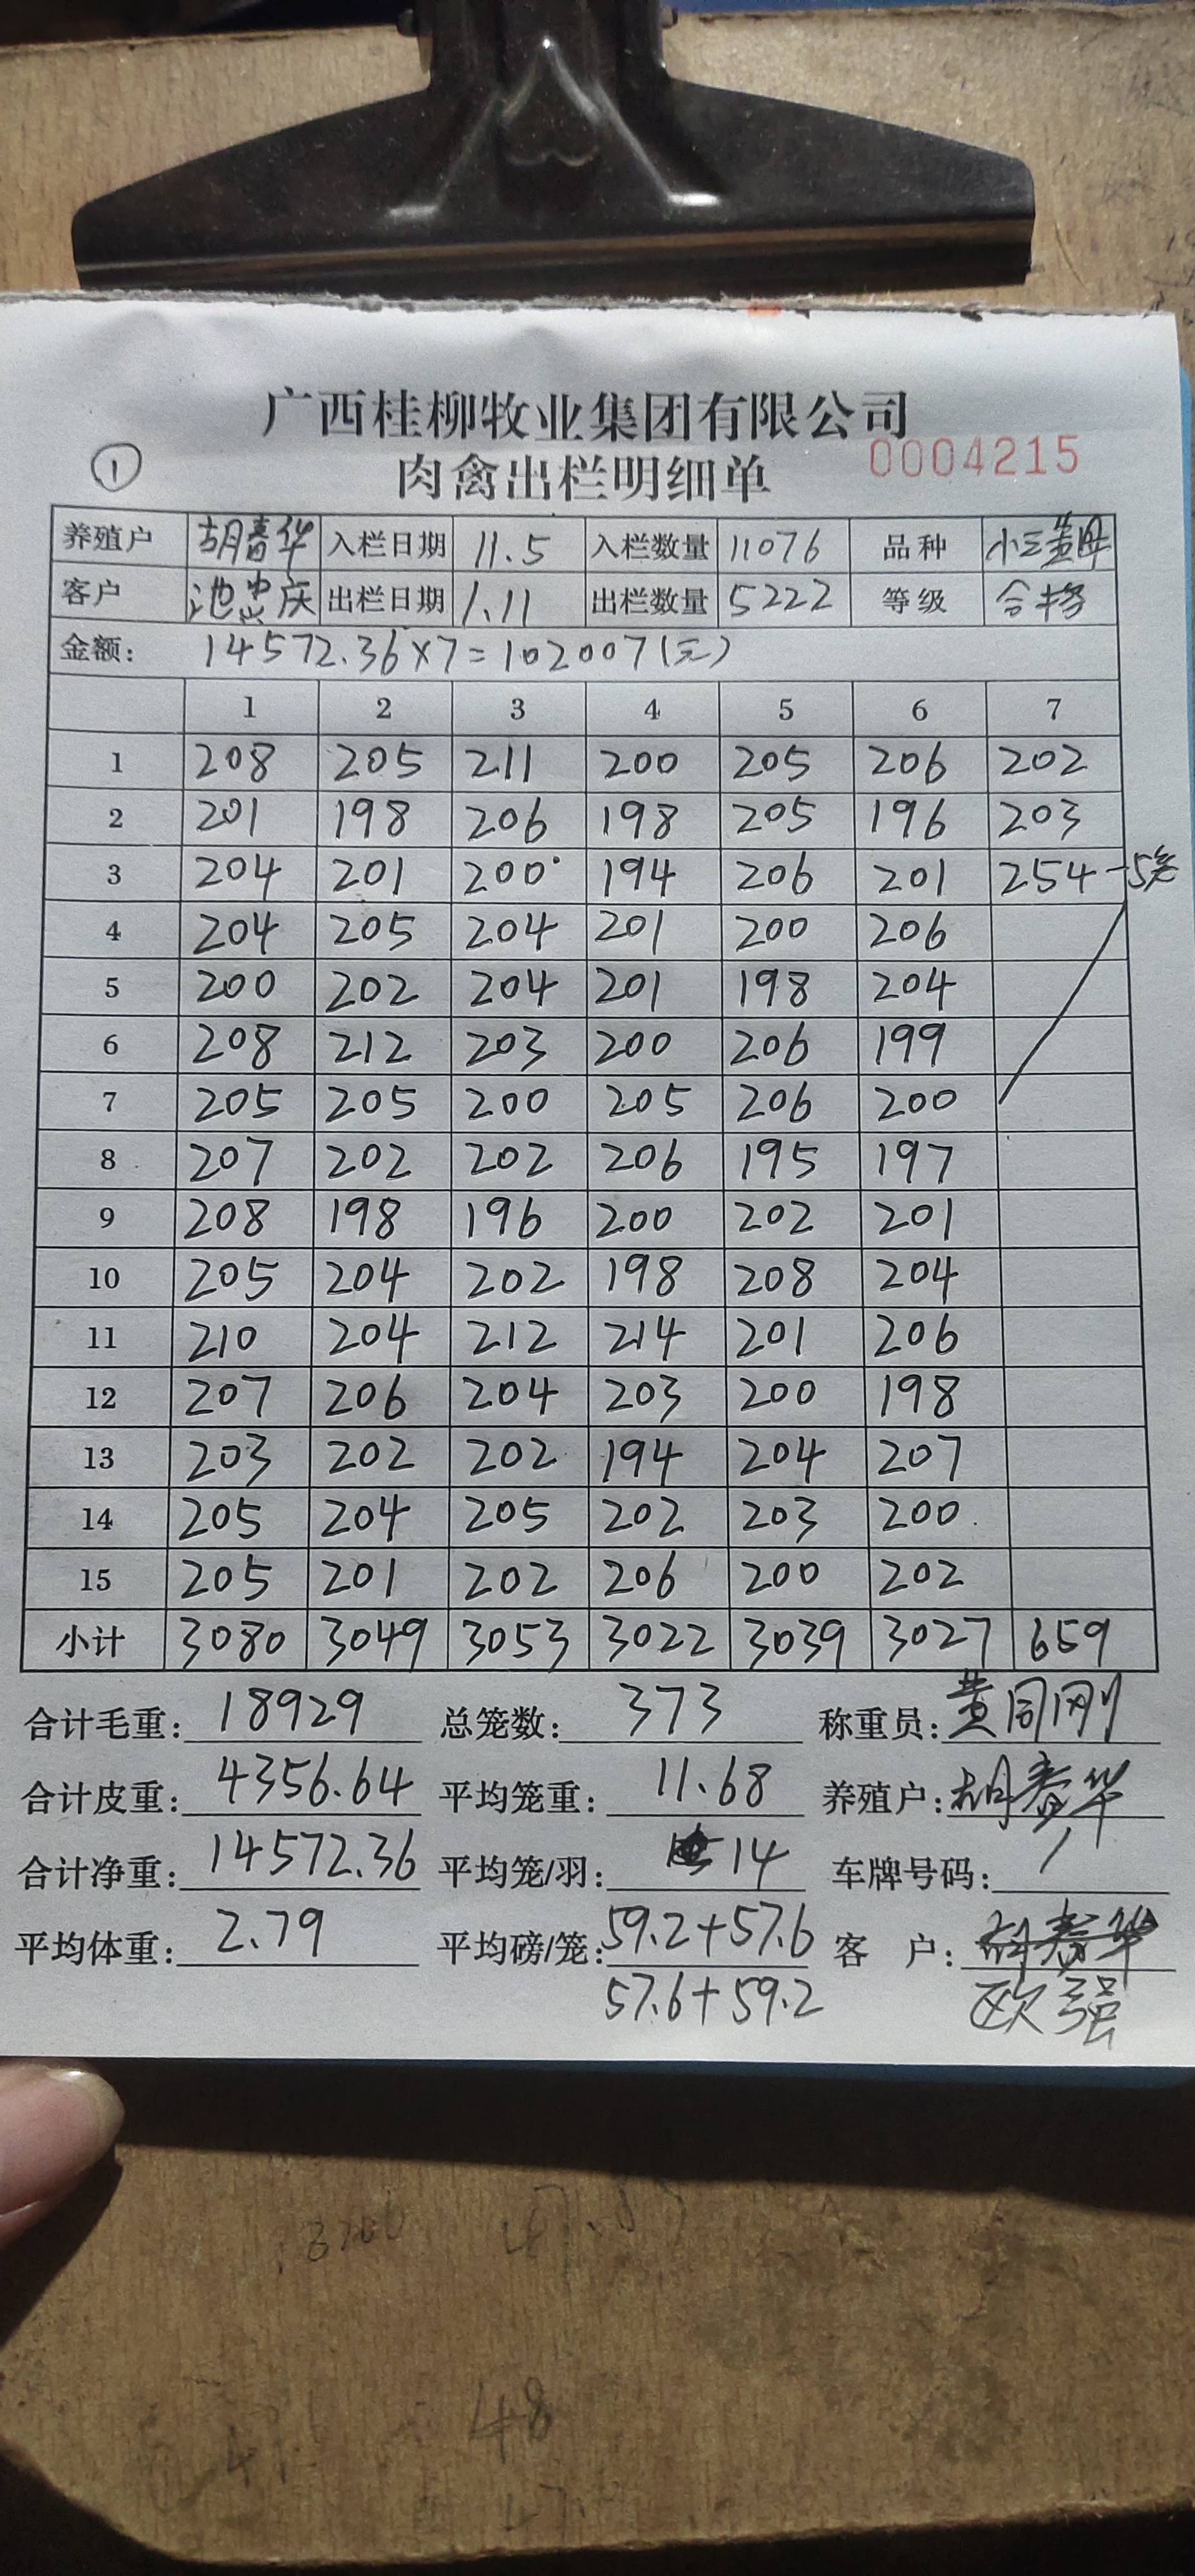 广西桂柳牧业集团有限公司
① 肉禽出栏明细单 0004215
养殖户 胡春华 入栏日期 11.5 入栏数量 11076 品种 小三黄
客户 池忠庆 出栏日期 1.11 出栏数量 5222 等级 合格
金额: 14572.36×7=102007(元)
1 2 3 4 5 6 7
1 208 205 211 200 205 206 202
2 201 198 206 198 205 196 203
3 204 201 200 194 206 201 254-5笼
4 204 205 204 201 200 206
5 200 202 204 201 198 204
6 208 212 203 200 206 199
7 205 205 200 205 206 200
8 207 202 202 206 195 197
9 208 198 196 200 202 201
10 205 204 202 198 208 204
11 210 204 212 214 201 206
12 207 206 204 203 200 198
13 203 202 202 194 204 207
14 205 204 205 202 203 200
15 205 201 202 206 200 202
小计 3080 3049 3053 3022 3039 3027 659
合计毛重: 18929 总笼数: 373 称重员: 黄同刚
合计皮重: 4356.64 平均笼重: 11.68 养殖户: 胡春华
合计净重: 14572.36 平均笼/羽: 14 车牌号码: /
平均体重: 2.79 平均磅/笼: 59.2+57.6 客 户: 胡春华
57.6+59.2 欧强
48